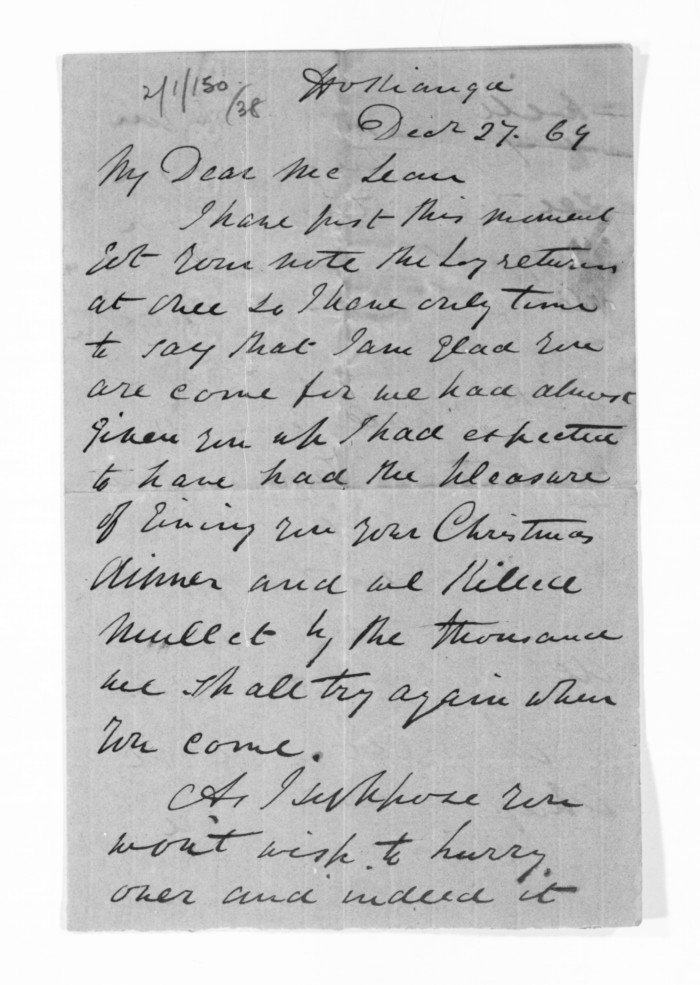 2/1/150
/38
Hokianga
Decr 27. 69
My Dear McLean
I have just this moment
got your note the boy returns
at once so I have only time
to say that I am glad you
are come for we had almost
given you up I had expected
to have had the pleasure
of giving you your Christmas
dinner and we killed
mullet by the thousand
we shall try again when
you come.
As I suppose you
won't wish to hurry
over and indeed it